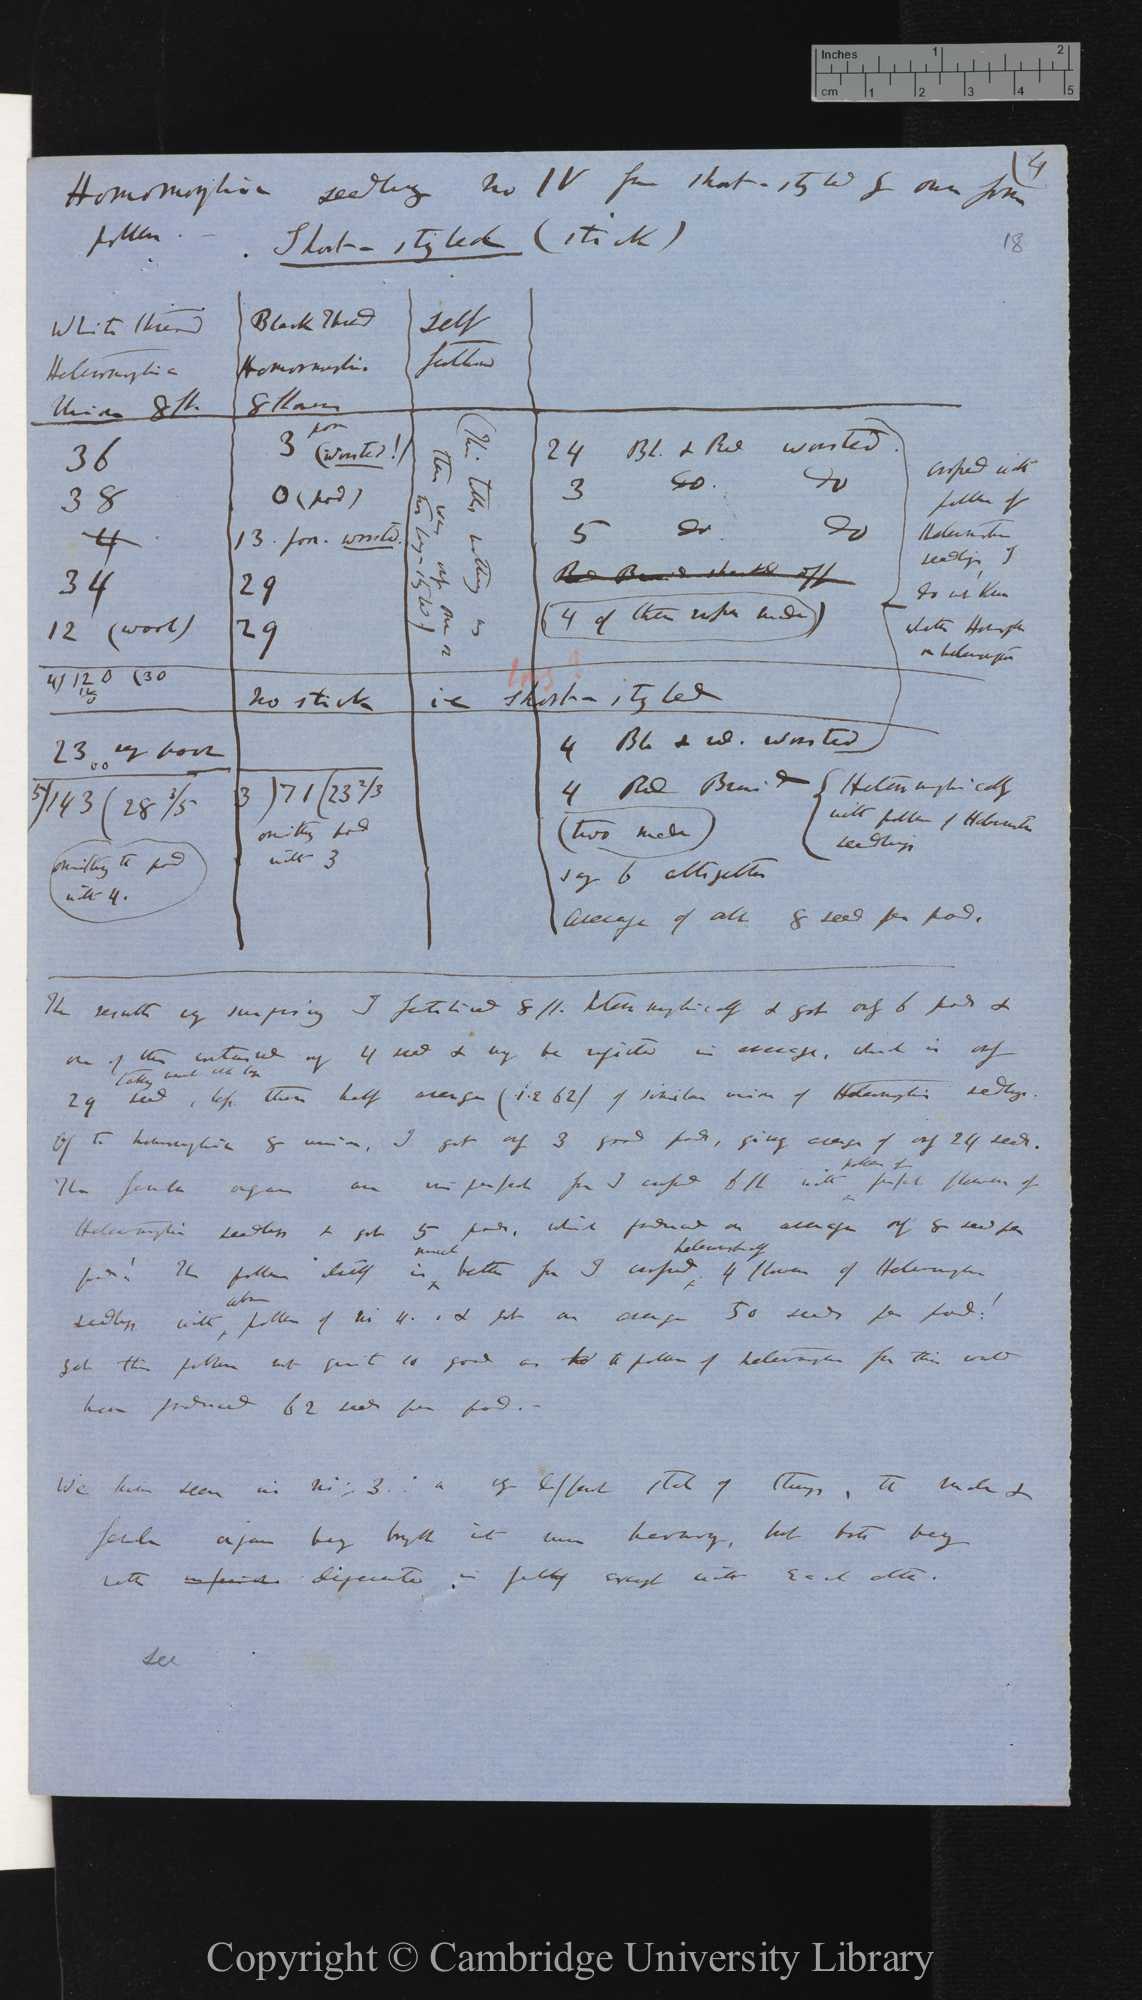 (4
Homomorphic seedling No IV from short-styled & own form
pollen. —
Short-styled (stick)
18
White thread
Heteromorphic
Union 8 fl.
Black Thread
Homomorphic
8 flowers
Self
fertilised
36
38
4
34
12 (wool)
4)120(30
12
0
23
5)143(28 3/5
omitting the pod
with 4.
3 poor (worsted!)
0 (pod)
13. poor. worsted.
29
29
No stick i.e. short-styled
long?
3)71(23 2/3
omitting pod
with 3
(This tells nothing as
there was only one or
two long-styled)
24 Bl. & Red worsted.
3 do. do
5 do do
Red Braid shook off
(4 of them only made)
crossed with
pollen of
Heteromorphic
seedlings, I
do not know
whether Homomorphic
or heteromorphic
4 Bl. & red. worsted
4 Red Braid
(two made)
Heteromorphically
with pollen of Heteromorphic
seedlings
say 6 altogether
average of all 8 seed per pod.
The results very surprising I fertilised 8 fl. heteromorphically & got only 6 pods &
one of these contained only 4 seed & may be rejected in average, which is only
29 seed, less than half average (i.e 62) of similar union of Heteromorphic seedlings.
Of the homomorphic 8 union, I got only 3 good pods, giving average of only 24 seeds.
The female organs are imperfect for I crossed 6 fl. with pollen of perfect flowers of
Heteromorphic seedlings & got 5 pods, which produced on average only 8 seed per
pod! The pollen itself is much better for I crossed heteromorphically 4 flowers of Heteromorphic
seedlings with above pollen of No 4. & got on average 50 seeds per pod!
Yet this pollen not quite so good as the pollen of heteromorphic for this would
have produced 62 seeds per pod. —
We have seen in No. 3. a very different state of things, the male &
female organs being brought it more harmony, but both being
rather deficient in fully enough with each other.
see
Inches 1 2
cm 1 2 3 4 5
Copyright © Cambridge University Library